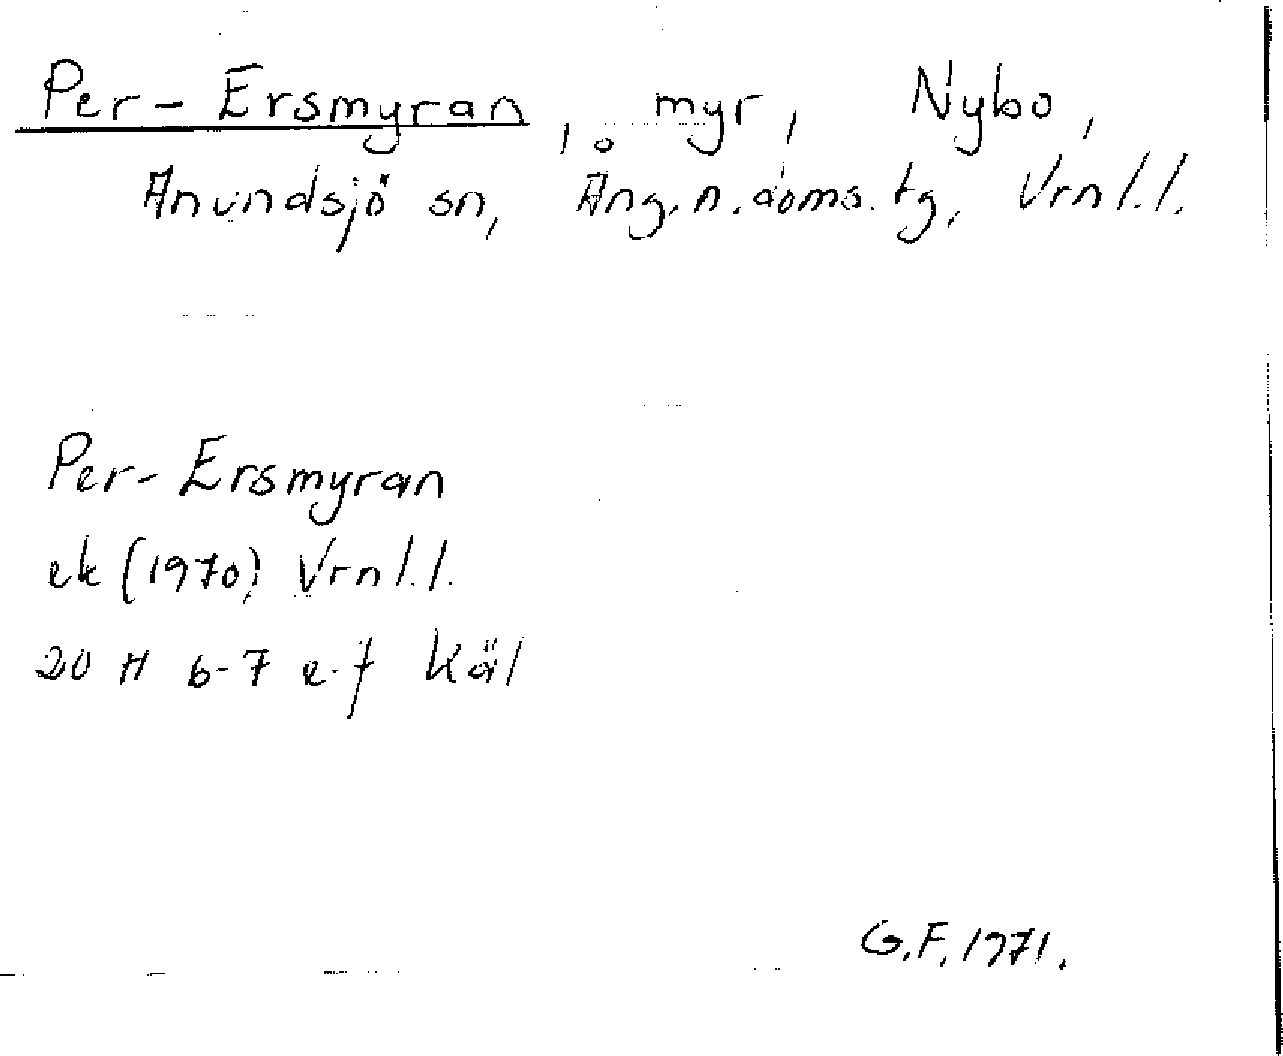 Per-Ersmyran, myr, Nybo,
Anundsjö sn, Ång.n.doms.tg, Vrnl.l.
Per-Ersmyran
ek (1970) Vrnl.l.
20 H 6-7 e-f Käl
G.F. 1971.